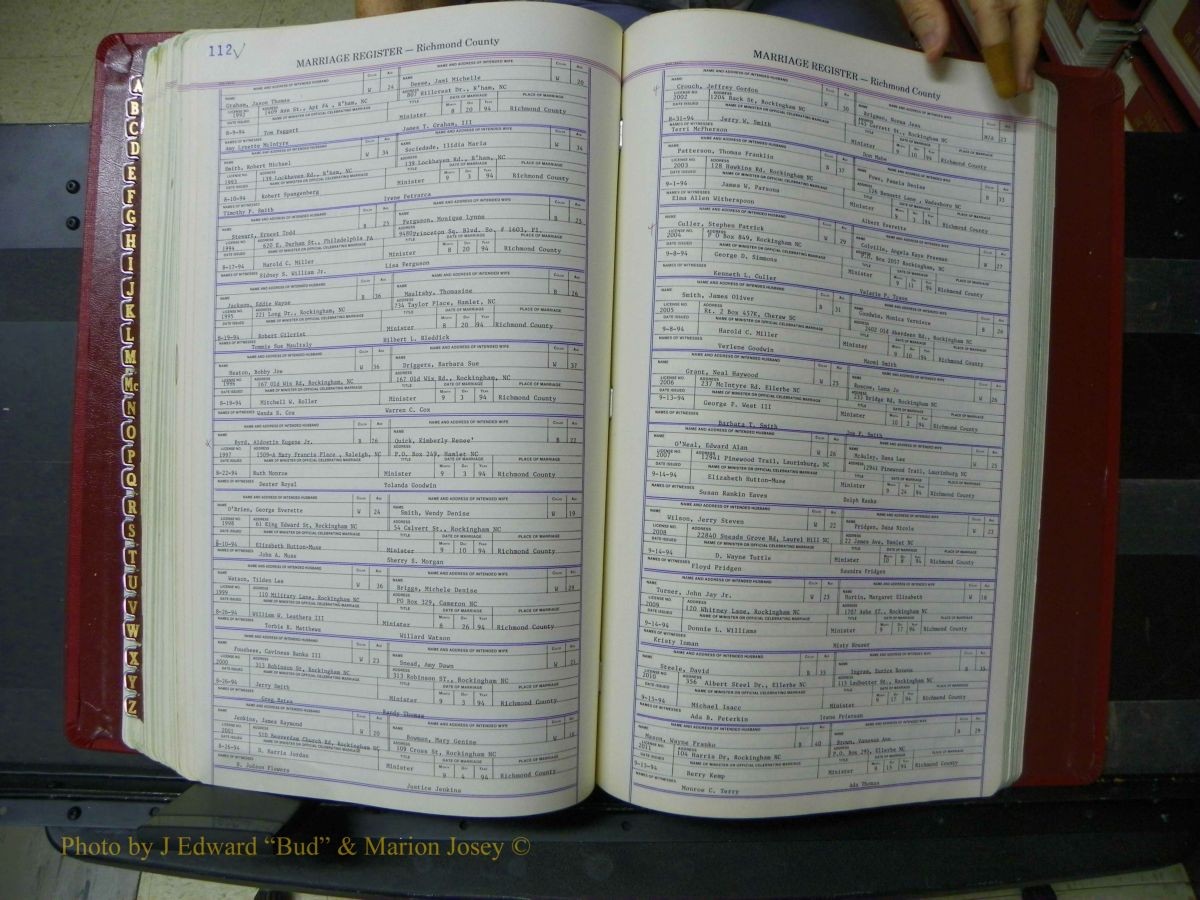 112
MARRIAGE REGISTER — Richmond County
NAME AND ADDRESS OF INTENDED HUSBAND NAME AND ADDRESS OF INTENDED WIFE
Graham, Jason Thomas W 24 Deese, Jami Michelle W 20
1409 Ann St., Apt FA, R'ham, NC 807 Hillcrest Dr., R'ham, NC
8-9-94 Tom Faggart Minister 8 20 94 Richmond County
Amy Lynette McIntyre James T. Graham, III
Smith, Robert Michael W 34 Sociedade, Ilidia Maria W 34
1993 139 Lockhaven Rd., R'ham, NC 139 Lockhaven Rd., R'ham, NC
8-10-94 Robert Spangenberg Minister 9 3 94 Richmond County
Timothy P. Smith Irene Petrarca
Stewart, Ernest Todd B 25 Ferguson, Monique Lynne B 23
1994 620 E. Durham St., Philadelphia PA 9480 Princeton Sq. Blvd. So. # 1603, Fl.
8-17-94 Harold C. Miller Minister 8 20 94 Richmond County
Sidney S. William Jr. Lisa Ferguson
Jackson, Eddie Wayne B 36 Maultsby, Thomasine B 26
1995 221 Long Dr., Rockingham, NC 234 Taylor Place, Hamlet, NC
8-19-94 Robert Gilcrist Minister 8 20 94 Richmond County
Tommie Sue Maultsly Hilbert L. Bleddick
Heaton, Bobby Joe W 36 Driggers, Barbara Sue W 37
1996 167 Old Wix Rd, Rockingham, NC 167 Old Wix Rd., Rockingham, NC
8-19-94 Mitchell W. Roller Minister 9 3 94 Richmond County
Wanda S. Cox Warren C. Cox
Byrd, Aldostin Eugene Jr. B 26 Quick, Kimberly Renee' B 22
1997 1509-A Mary Francis Place, Raleigh, NC P.O. Box 249, Hamlet NC
8-22-94 Ruth Monroe Minister 9 3 94 Richmond County
Dexter Royal Yolanda Goodwin
O'Brien, George Everette W 24 Smith, Wendy Denise W 19
1998 61 King Edward St, Rockingham NC 54 Calvert St., Rockingham NC
8-10-94 Elizabeth Hutton-Muse Minister 9 10 94 Richmond County
John A. Muse Sherry S. Morgan
Watson, Tilden Lee W 36 Briggs, Michele Denise W 29
1999 110 Military Lane, Rockingham NC PO Box 329, Cameron NC
8-26-94 William W. Leathers III Minister 8 26 94 Richmond County
Torbie R. Matthews Willard Watson
Foushees, Cavineas Banks III W 23 Snead, Amy Dawn W 21
2000 313 Robinson St, Rockingham NC 313 Robinson ST., Rockingham NC
8-26-94 Jerry Smith Minister 9 3 94 Richmond County
Greg Bates Randy Thomas
Jenkins, James Raymond W 20 Bowman, Mary Genine W 18
2001 510 Beaverdam Church Rd, Rockingham NC 109 Cross St, Rockingham NC
8-26-94 D. Harris Jordan Minister 9 4 94 Richmond County
B. Judson Flowers Justice Jenkins
MARRIAGE REGISTER — Richmond County
NAME AND ADDRESS OF INTENDED HUSBAND NAME AND ADDRESS OF INTENDED WIFE
Crouch, Jeffrey Gordon W 30 Brigman, Norma Jean
2002 1204 Rock St, Rockingham NC Garrett St., Rockingham NC
8-31-94 Jerry W. Smith Minister 9 10 94 Richmond County
Terri McPherson Don Mabe
Patterson, Thomas Franklin B 37 Powe, Pamela Denise B 33
2003 128 Hawkins Rd, Rockingham NC 126 Bennett Lane, Wadesboro NC
9-1-94 James W. Parsons Minister Richmond County
Elma Allen Witherspoon Albert Everette
Culler, Stephen Patrick W 29 Colville, Angela Kaye Freeman W 27
2004 P O Box 849, Rockingham NC P.O. Box 2057 Rockingham, NC
9-8-94 George D. Simmons Minister Richmond County
Kenneth L. Culler Valarie P. Tyson
Smith, James Oliver B 31 Goodwin, Monica Verniece B 26
2005 Rt. 2 Box 457E, Cheraw SC 2402 Old Aberdeen Rd., Rockingham NC
9-8-94 Harold C. Miller Minister 9 10 94 Richmond County
Verlene Goodwin Naomi Smith
Grant, Neal Haywood W 25 Roscoe, Lana Jo W 26
2006 237 McIntyre Rd. Ellerbe NC 233 Bridge Rd, Rockingham NC
9-13-94 George P. West III Minister 10 2 94 Richmond County
Barbara T. Smith Jon P. Smith
O'Neal, Edward Alan W 26 McAuley, Dana Lee W 25
2007 12941 Pinewood Trail, Laurinburg, NC 12941 Pinewood Trail, Laurinburg NC
9-14-94 Elizabeth Hutton-Muse Minister 9 24 94 Richmond County
Susan Rankin Eaves Dolph Ranke
Wilson, Jerry Steven W 22 Pridgen, Dana Nicole W 23
2008 22840 Sneads Grove Rd, Laurel Hill NC 22 James Ave, Hamlet NC
9-14-94 D. Wayne Tuttle Minister 10 8 94 Richmond County
Floyd Pridgen Saundra Pridgen
Turner, John Jay Jr. W 23 Martin, Margaret Elizabeth W 18
2009 120 Whitney Lane, Rockingham NC 1707 Ashe ST., Rockingham NC
9-14-94 Donnie L. Williams Minister 9 17 94 Richmond County
Kristy Inman Misty Hoover
Steele, David B 35 Ingram, Eunice Rowena B 35
2010 356 Albert Steel Dr., Ellerbe NC 115 Ledbetter St., Rockingham NC
9-13-94 Michael Isacc Minister 9 17 94 Richmond County
Ada B. Peterkin Irene Prierson
Mason, Wayne Franko B 40 Brown, Vanessa Ann B 29
2011 104 Harris Dr, Rockingham NC P.O. Box 295, Ellerbe NC
9-13-94 Berry Kemp Minister 8 15 94 Richmond County
Monroe C. Terry Ada Thomas
A
B
C
D
E
F
G
H
I
J
K
L
M
Mc
N
O
P
Q
R
S
T
U
V
W
X
Y
Z
Photo by J Edward “Bud” & Marion Josey ©